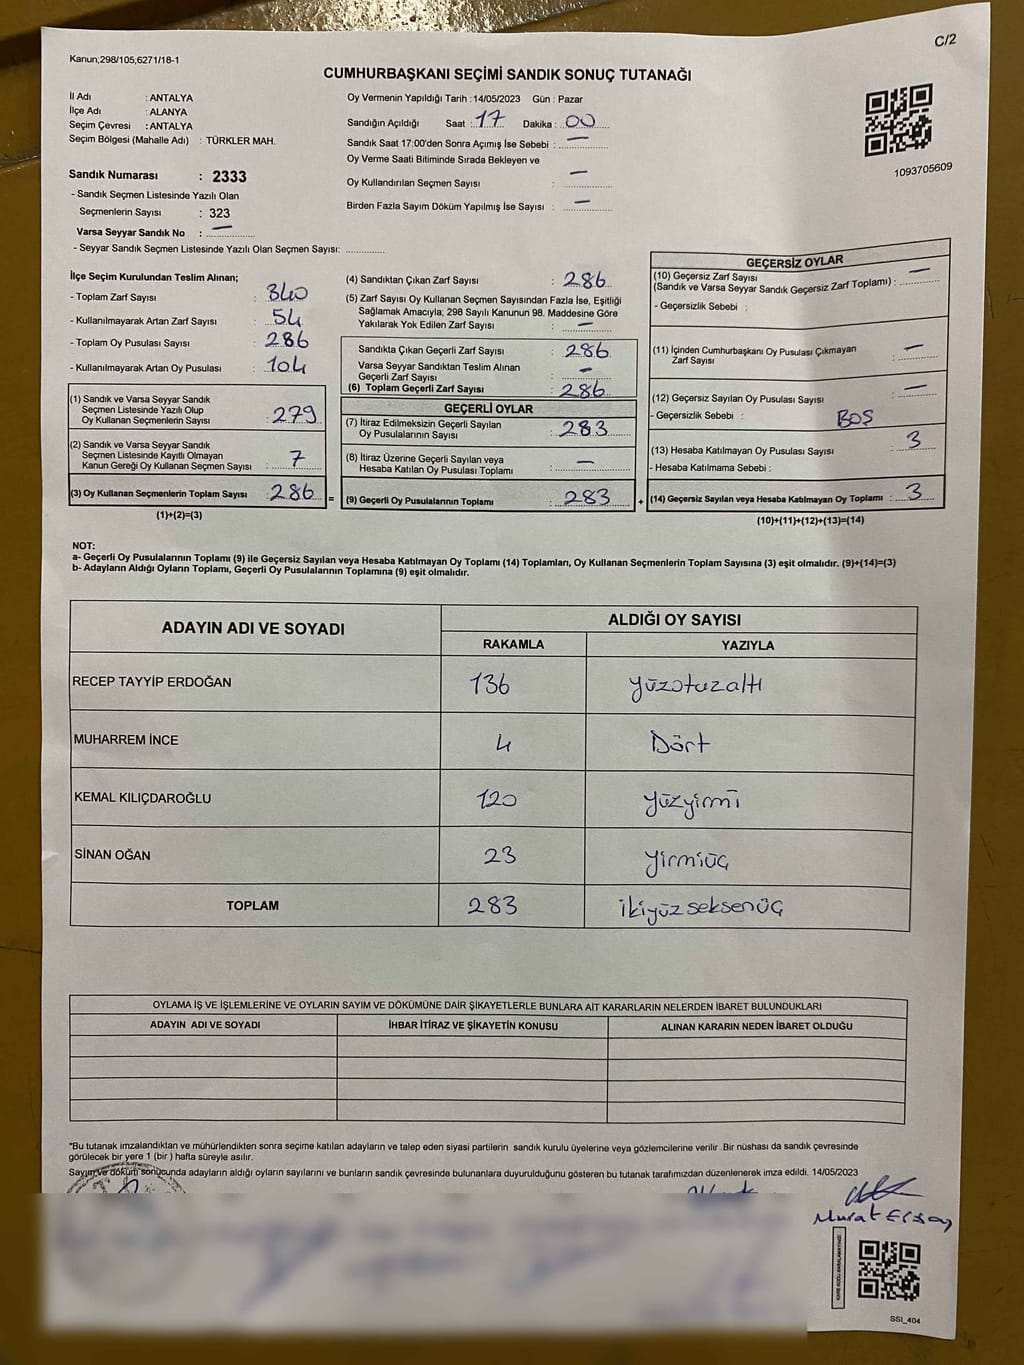 C/2
Kanun;298/105;6271/18-1
CUMHURBAŞKANI SEÇİMİ SANDIK SONUÇ TUTANAĞI
İl Adı : ANTALYA
İlçe Adı : ALANYA
Seçim Çevresi : ANTALYA
Seçim Bölgesi (Mahalle Adı) : TÜRKLER MAH.
Sandık Numarası : 2333
- Sandık Seçmen Listesinde Yazılı Olan
Seçmenlerin Sayısı : 323
Varsa Seyyar Sandık No : —
- Seyyar Sandık Seçmen Listesinde Yazılı Olan Seçmen Sayısı: ............
Oy Vermenin Yapıldığı Tarih :14/05/2023 Gün : Pazar
Sandığın Açıldığı Saat : 17 Dakika : 00
Sandık Saat 17:00'den Sonra Açımış İse Sebebi : —
Oy Verme Saati Bitiminde Sırada Bekleyen ve
Oy Kullandırılan Seçmen Sayısı : —
Birden Fazla Sayım Döküm Yapılmış İse Sayısı : —
1093705609
İlçe Seçim Kurulundan Teslim Alınan;
- Toplam Zarf Sayısı : 340
- Kullanılmayarak Artan Zarf Sayısı : 54
- Toplam Oy Pusulası Sayısı : 286
- Kullanılmayarak Artan Oy Pusulası : 104
(1) Sandık ve Varsa Seyyar Sandık
Seçmen Listesinde Yazılı Olup
Oy Kullanan Seçmenlerin Sayısı : 279
(2) Sandık ve Varsa Seyyar Sandık
Seçmen Listesinde Kayıtlı Olmayan
Kanun Gereği Oy Kullanan Seçmen Sayısı : 7
(3) Oy Kullanan Seçmenlerin Toplam Sayısı : 286 =
(1)+(2)=(3)
(4) Sandıktan Çıkan Zarf Sayısı : 286
(5) Zarf Sayısı Oy Kullanan Seçmen Sayısından Fazla İse, Eşitliği
Sağlamak Amacıyla; 298 Sayılı Kanunun 98. Maddesine Göre
Yakılarak Yok Edilen Zarf Sayısı : —
Sandıkta Çıkan Geçerli Zarf Sayısı : 286
Varsa Seyyar Sandıktan Teslim Alınan
Geçerli Zarf Sayısı : —
(6) Toplam Geçerli Zarf Sayısı : 286
GEÇERLİ OYLAR
(7) İtiraz Edilmeksizin Geçerli Sayılan
Oy Pusulalarının Sayısı : 283
(8) İtiraz Üzerine Geçerli Sayılan veya
Hesaba Katılan Oy Pusulası Toplamı : —
(9) Geçerli Oy Pusulalarının Toplamı : 283 +
GEÇERSİZ OYLAR
(10) Geçersiz Zarf Sayısı
(Sandık ve Varsa Seyyar Sandık Geçersiz Zarf Toplamı) : —
- Geçersizlik Sebebi :
(11) İçinden Cumhurbaşkanı Oy Pusulası Çıkmayan
Zarf Sayısı : —
(12) Geçersiz Sayılan Oy Pusulası Sayısı : —
- Geçersizlik Sebebi : BOŞ
(13) Hesaba Katılmayan Oy Pusulası Sayısı : 3
- Hesaba Katılmama Sebebi :
(14) Geçersiz Sayılan veya Hesaba Katılmayan Oy Toplamı : 3
(10)+(11)+(12)+(13)=(14)
NOT:
a- Geçerli Oy Pusulalarının Toplamı (9) ile Geçersiz Sayılan veya Hesaba Katılmayan Oy Toplamı (14) Toplamları, Oy Kullanan Seçmenlerin Toplam Sayısına (3) eşit olmalıdır. (9)+(14)=(3)
b- Adayların Aldığı Oyların Toplamı, Geçerli Oy Pusulalarının Toplamına (9) eşit olmalıdır.
ADAYIN ADI VE SOYADI ALDIĞI OY SAYISI
RAKAMLA YAZIYLA
RECEP TAYYİP ERDOĞAN 136 yüzotuzaltı
MUHARREM İNCE 4 Dört
KEMAL KILIÇDAROĞLU 120 yüzyirmi
SİNAN OĞAN 23 yirmiüç
TOPLAM 283 ikiyüzseksenüç
OYLAMA İŞ VE İŞLEMLERİNE VE OYLARIN SAYIM VE DÖKÜMÜNE DAİR ŞİKAYETLERLE BUNLARA AİT KARARLARIN NELERDEN İBARET BULUNDUKLARI
ADAYIN ADI VE SOYADI İHBAR İTİRAZ VE ŞİKAYETİN KONUSU ALINAN KARARIN NEDEN İBARET OLDUĞU
*Bu tutanak imzalandıktan ve mühürlendikten sonra seçime katılan adayların ve talep eden siyasi partilerin sandık kurulu üyelerine veya gözlemcilerine verilir .Bir nüshası da sandık çevresinde
görülecek bir yere 1 (bir ) hafta süreyle asılır.
Sayım ve döküm sonucunda adayların aldığı oyların sayılarını ve bunların sandık çevresinde bulunanlara duyurulduğunu gösteren bu tutanak tarafımızdan düzenlenerek imza edildi. 14/05/2023
Murat
SSI_404